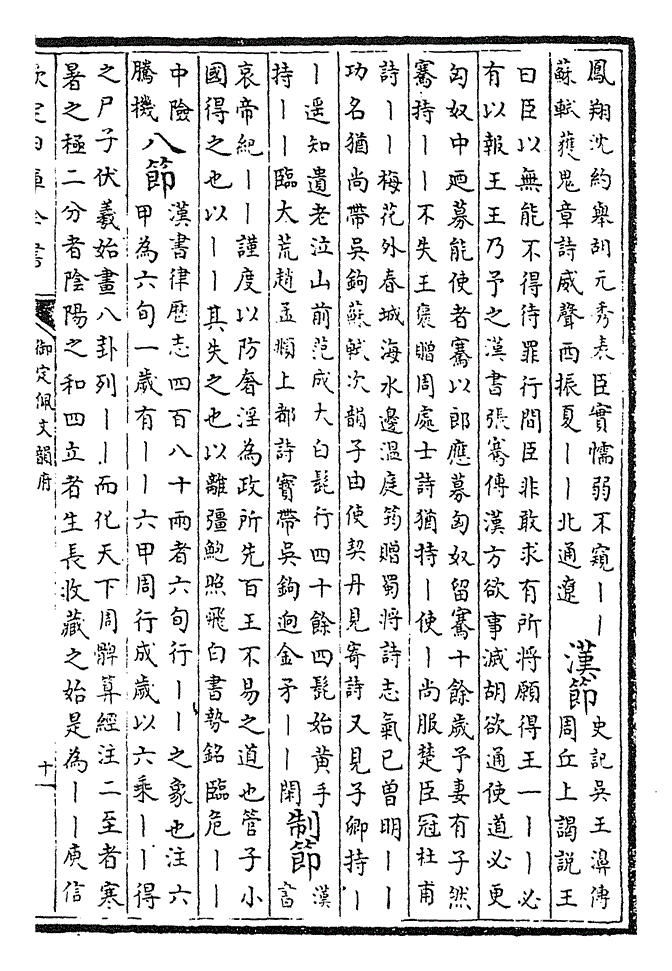 鳳翔沈約舉胡元秀表臣實懦弱不窺｜｜
蘇軾獲鬼章詩威聲西振夏｜｜北通遼
漢節
史記吳王濞傳
周丘上謁說王
曰臣以無能不得待罪行間臣非敢求有所將願得王一｜｜必
有以報王王乃予之漢書張騫傳漢方欲事滅胡欲通使道必更
匈奴中廼募能使者騫以郎應募匈奴留騫十餘歲予妻有子然
騫持｜｜不失王褒贈周處士詩猶持｜使｜尚服楚臣冠杜甫
詩｜｜梅花外春城海水邊溫庭筠贈蜀將詩志氣已曾明｜｜
功名猶尚帶吳鉤蘇軾次韻子由使契丹見寄詩又見子卿持｜
｜遥知遺老泣山前范成大白髭行四十餘四髭始黄手
持｜｜臨大荒趙孟頫上都詩寳帶吳鉤迥金矛｜｜閑
制節
漢
書
哀帝紀｜｜謹度以防奢淫為政所先百王不易之道也管子小
國得之也以｜｜其失之也以離彊鮑照飛白書勢銘臨危｜｜
中險
騰機
八節
漢書律歷志四百八十兩者六旬行｜｜之象也注六
甲為六旬一歲有｜｜六甲周行成歲以六乘｜｜得
之尸子伏羲始畫八卦列｜｜而化天下周髀算經注二至者寒
暑之極二分者陰陽之和四立者生長收藏之始是為｜｜庾信
欽定四庫全書
御定佩文韻府
十一